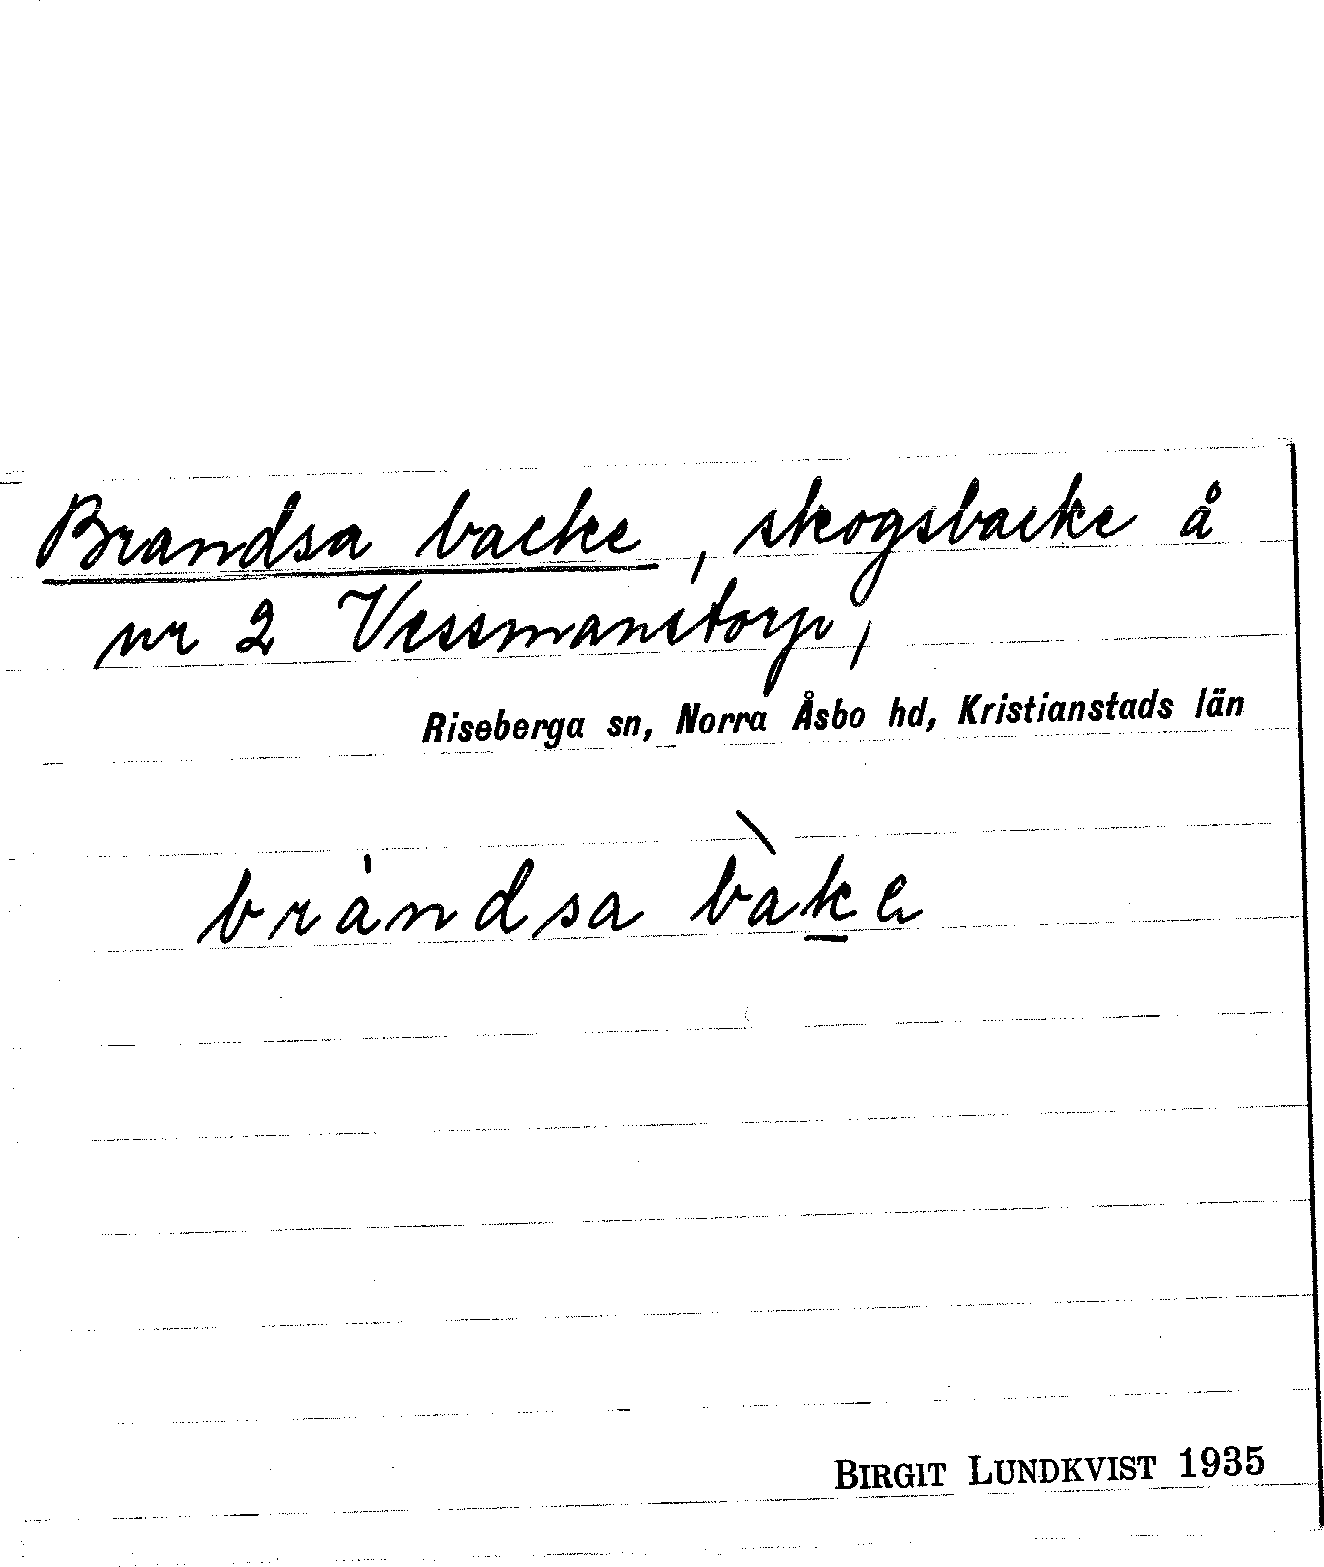 Brandsa backe, skogsbacke å
nr 2 Vessmanstorp,
Riseberga sn, Norra Åsbo hd, Kristianstads län
bràndsa bàke
BIRGIT LUNDKVIST 1935